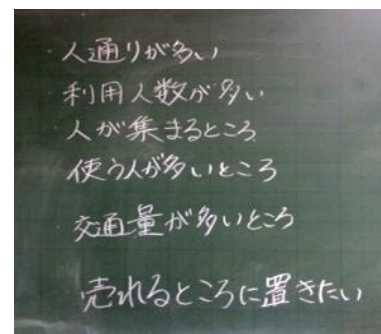 ・人通りが多い
・利用人数が多い
・人が集まるところ
・使う人が多いところ
・交通量が多いところ
・売れるところに置きたい